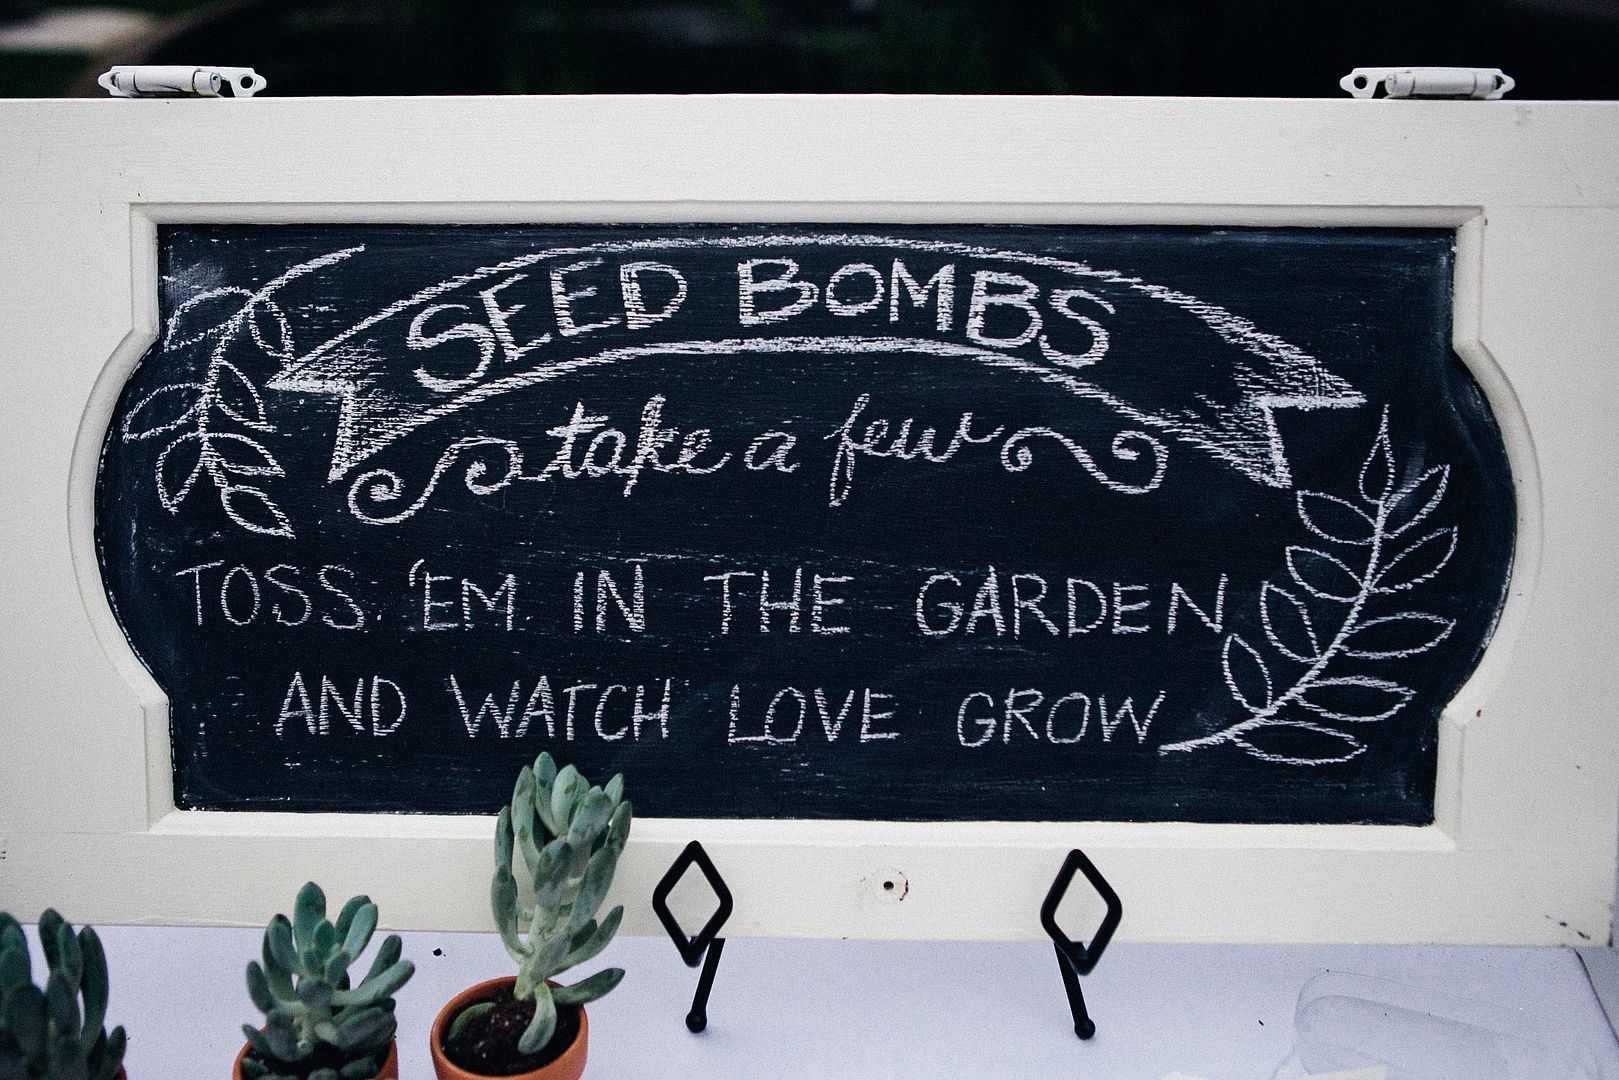 SEED BOMBS
take a few
TOSS 'EM IN THE GARDEN
AND WATCH LOVE GROW